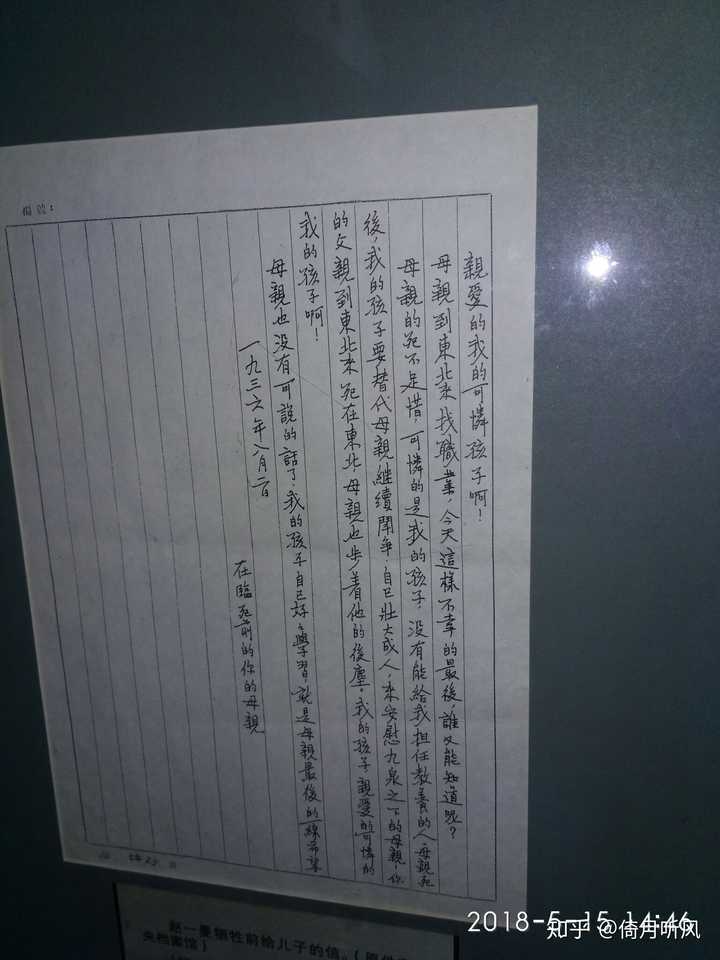 編號：
親愛的我的可憐孩子啊！
母親到東北來找職業，今天這樣不幸的最後，誰又能知道呢？
母親的死不足惜，可憐的是我的孩子，没有能給我担任教養的人。母親死
後，我的孩子要替代母親繼續鬥争，自己壯大成人，來安慰九泉之下的母親，你
的父親到東北來死在東北，母親也步着他的後塵。我的孩子，親愛的可憐的
我的孩子啊！
母親也没有可說的話了，我的孩子自己好々學習，就是母親最後的一線希望
一九三六年八月二日
在臨死前的你的母親
赵一曼牺牲前给儿子的信。（原件
央档案馆）
2018-5-15 14:46
知乎 @倚月听风